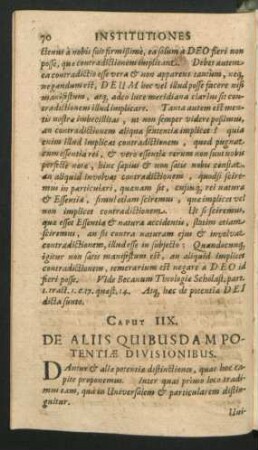 70 INSTITUTIONES
ctenus à nobis sit firmissimè, ea solum à DEO fieri non
posse, quæ contradictionem implicant. Debet autem
ea contradictio esse vera & non apparens tantum, neq,
negandum est, DEUM hoc vel illud posse facere nisi
manifestum, atq, adeo luce meridiana clarius sit con-
tradictionem illud implicare. Tanta autem est men-
tis nostræ imbecillitas, ut non semper videre possimus,
an contradictionem aliqua sententia implicet: quia
enim illud implicat contradictionem, quod pugnat
cum essentia rei, & verò essentia rerum non sunt nobis
perfectè nota, hinc sæpius & non satis nobis constat,
an aliquid involvat contradictionem, quodsi scire-
mus in particulari, quænam sit, cujusq, rei natura
& Essentia, simul etiam sciremus, quæ implicet vel
non implicet contradictionem. Ut si sciremus,
quæ esset Essentia & natura accidentis, statim etiam
sciremus an sit contra naturam ejus & involvat
contradictionem, illud esse in subjecto: Quandocunq,
igitur non satis manifestum est, an aliquid implicet
contradictionem, temerarium est negare à DEO id
fieri posse. Vide Becanum Theologiæ Scholast. part.
1. tract. 1. c. 17. quæst. 14. Atq, hæc de potentia DEI
dicta sunto.
CAPUT IIX.
DE ALIIS QUIBUSDAM PO-
TENTIÆ DIVISIONIBUS.
DAntur & alia potentiæ distinctiones, quas hoc ca-
pite proponemus. Inter quas primo loco tradi-
mus eam, quâ in Universalem & particularem distin-
guitur.
Uni-